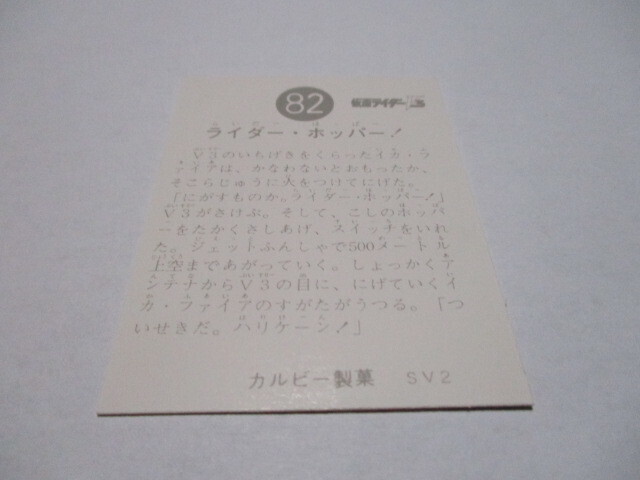 82 仮面ライダーV3
ライダー・ホッパー!
V3のいちげきをくらったイカ・フ
ァイアは、かなわないとおもったか、
そこらじゅうに火をつけてにげた。
「にがすものか。ライダー・ホッパー!」
V3がさけぶ。そして、こしのホッパ
ーをたかくさしあげ、スイッチをいれ
た。ジェットふんしゃで500メートル
上空まであがっていく。しょっかくア
ンテナからV3の目に、にげていくイ
カ・ファイアのすがたがうつる。「つ
いせきだ。ハリケーン!」
カルビー製菓 SV2